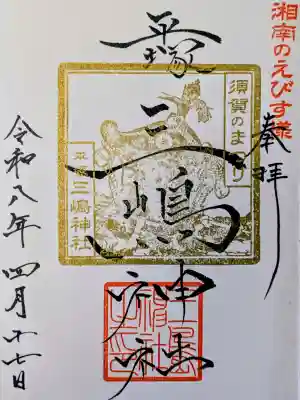 湘南のえびす様
奉拝
平塚
三嶋神社
須賀のまつり
平塚三嶋神社
令和八年四月十七日